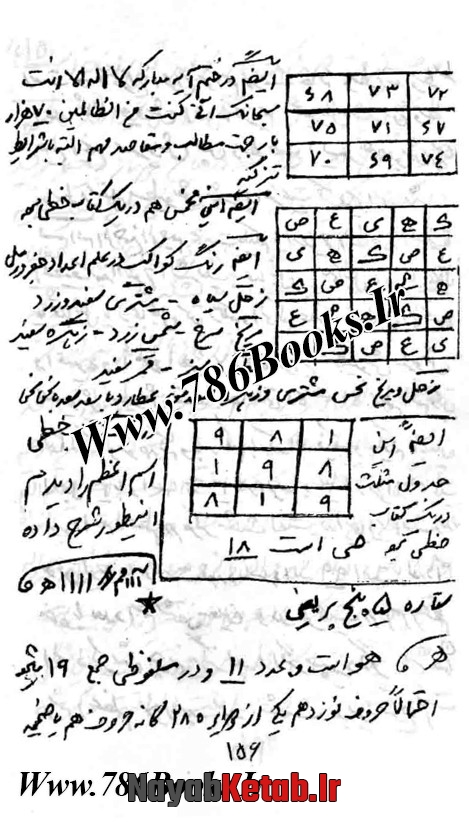 ایضاً در ختم آیه مبارکه لا اله الا انت
سبحانک انی کنت من الظالمین ۷۰ هزار
بار جهت مطالب و مقاصد مهم البته با شرایط
تزکیه
۶۸ ۷۳ ۷۲
۷۵ ۷۱ ۶۷
۷۰ ۶۹ ۷۴
ایضاً این مخمس هم در یک کتاب خطی بود
ک ه ی ع ص
ع ص ک ه ی
ه ی ع ص ک
ص ک ه ی ع
ی ع ص ک ه
ایضاً رنگ کواکب در علم اعداد جفر و رمل
زحل سیاه - مشتری سفید و زرد
مریخ سرخ - شمس زرد - زهره سفید
قمر سفید
زحل و مریخ نحس مشتری و زهره عطارد با سعد سعد با نحس نحس
خطی
اسم اعظم را دیدم
اینطور شرح داده
۹ ۸ ۱
۱ ۹ ۸
۸ ۱ ۹
ایضاً این
جدول مثلث
در یک کتاب
خطی هی است ۱۸
★
ستاره پنج پر یعنی
هو است و عدد ۱۱ و در ملفوظی جمع ۱۹
احتمالاً حروف نوزدهم یکی از ۲۸ گانه حروف هم باضمیمه
۱۵۶
Www.786Books.Ir
Www.786Books.Ir
NayabKetab.Ir